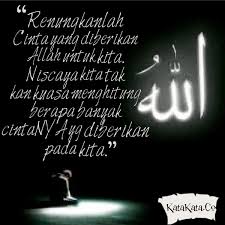 “Renungkanlah
Cinta yang diberikan
Allah untuk kita.
Niscaya kita tak
kan kuasa menghitung
berapa banyak
cintaNYA yg diberikan
pada kita.”
الله
KataKata.Co